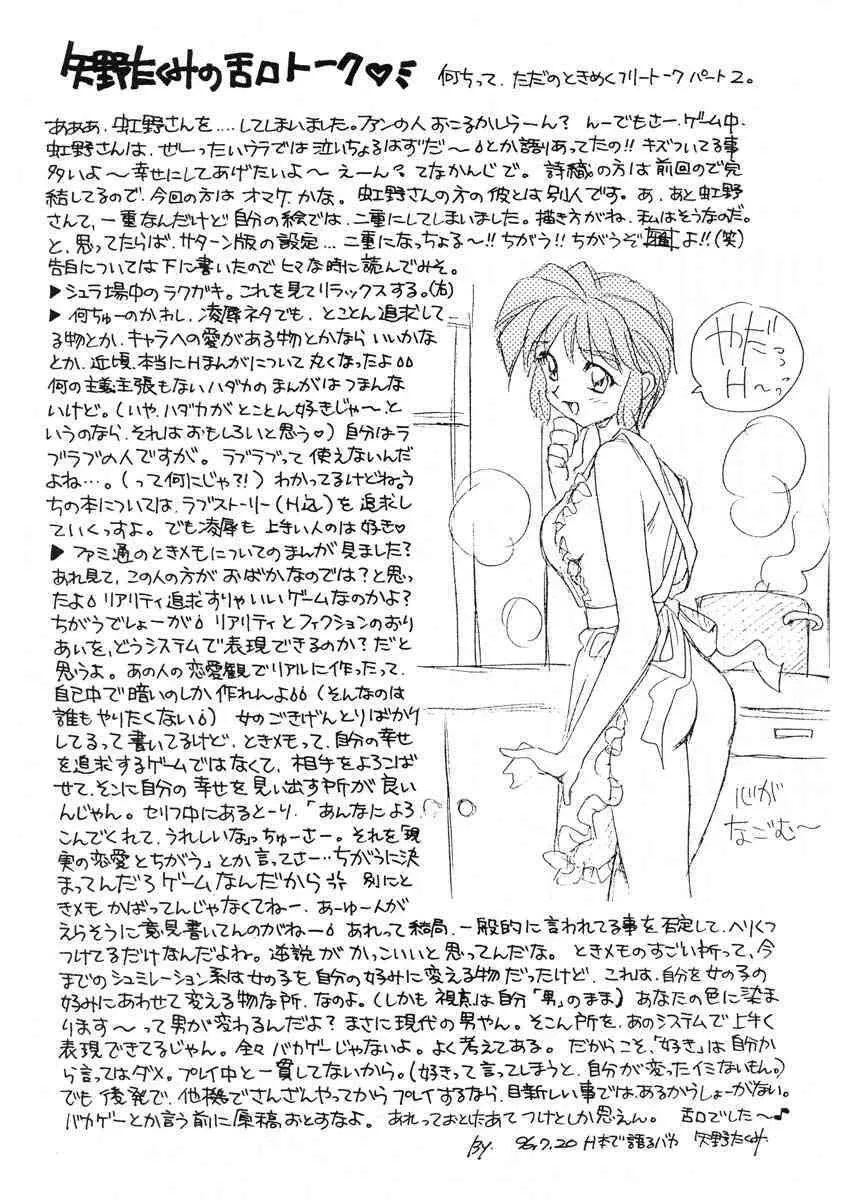 矢野たくみの舌口トーク♡ミ
何ちって、ただのときめくフリートークパート2。
あぁあ、虹野さんを....してしまいました。ファンの人おこるかしらーん？んーでもさー、ゲーム中、
虹野さんは、ぜーったいウラでは泣いちょるはずだ〜とか語りあってたの!!キズついてる事
多いよ〜幸せにしてあげたいよ〜えーん?てなかんじで。詩織の方は前回ので完
結してるので、今回の方はオマケかな。虹野さんの方の彼とは別人です。あ、あと虹野
さんて、一重なんだけど自分の絵では、二重にしてしまいました。描き方がね、私はそうなのだ。
と、思ってたらば、サターン版の設定...二重になっちょる〜!!ちがう!!ちがうぞよ!!(笑)
告白については下に書いたのでヒマな時に読んでみそ。
▶シュラ場中のラクガキ。これを見てリラックスする。(右)
▶何ちゅーのかわし、凌辱ネタでも、とことん追求して
る物とか、キャラへの愛がある物とかならいいかな
とか、近頃、本当にHまんがについて丸くなったよ
何の主義主張もないハダカのまんがはつまんな
いけど。(いや、ハダカがとことん好きじゃ〜と
いうのなら、それはおもしろいと思う♡)自分はラ
ブラブの人ですが。ラブラブって使えないんだ
よね…。(って何にじゃ?!)わかってるけどね。う
ちの本については、ラブストーリー(H込)を追求し
ていくっすよ。でも凌辱も上手い人のは好き♡
▶ファミ通のときメモについてのまんが見ました?
あれ見て、この人の方がおばかなのでは?と思っ
たよ リアリティ追求すりゃいいゲームなのかよ?
ちがうでしょーが リアリティとフィクションのおり
あいを、どうシステムで表現できるのか?だと
思うよ。あの人の恋愛観でリアルに作ったって、
自己中で暗いのしか作れんよ(そんなのは
誰もやりたくない)女のごきげんとりばかり
してるって書いてるけど、ときメモって、自分の幸せ
を追求するゲームではなくて、相手をよろこば
せて、そこに自分の幸せを見い出す所が良い
んじゃん。セリフ中にあるとーり、「あんなによろ
こんでくれて、うれしいな」っちゅーさー。それを「現
実の恋愛とちがう」とか言ってさー‥ちがうに決
まってんだろゲームなんだから 別にと
きメモかばってんじゃなくてねー、あーゆー人が
えらそうに意見書いてんのがねー あれって結局、一般的に言われてる事を否定して、ヘリくつ
つけてるだけなんだよね。逆説がかっこいいと思ってんだな。ときメモのすごい所って、今
までのシュミレーション系は女の子を自分の好みに変える物だったけど、これは、自分を女の子の
好みにあわせて変える物な所、なのよ。(しかも視点は自分「男」のまま)あなたの色に染ま
ります〜って男が変わるんだよ?まさに現代の男やん。そこん所を、あのシステムで上手く
表現できてるじゃん。全々バカゲーじゃないよ。よく考えてある。だからこそ、「好き」は自分か
ら言ってはダメ。プレイ中と一貫してないから。(好きって言ってしまうと、自分が変ったイミないもん。)
でも後発で、他機でさんざんやってからプレイするなら、目新しい事では、あるからしょーがない。
バカゲーとか言う前に原稿おとすなよ。あれっておとしたあてつけとしか思えん。舌口でした〜♪
By. 96.7.20 H本で語るバカ 矢野たくみ
やだっ
H〜っ
心が
なごむ〜